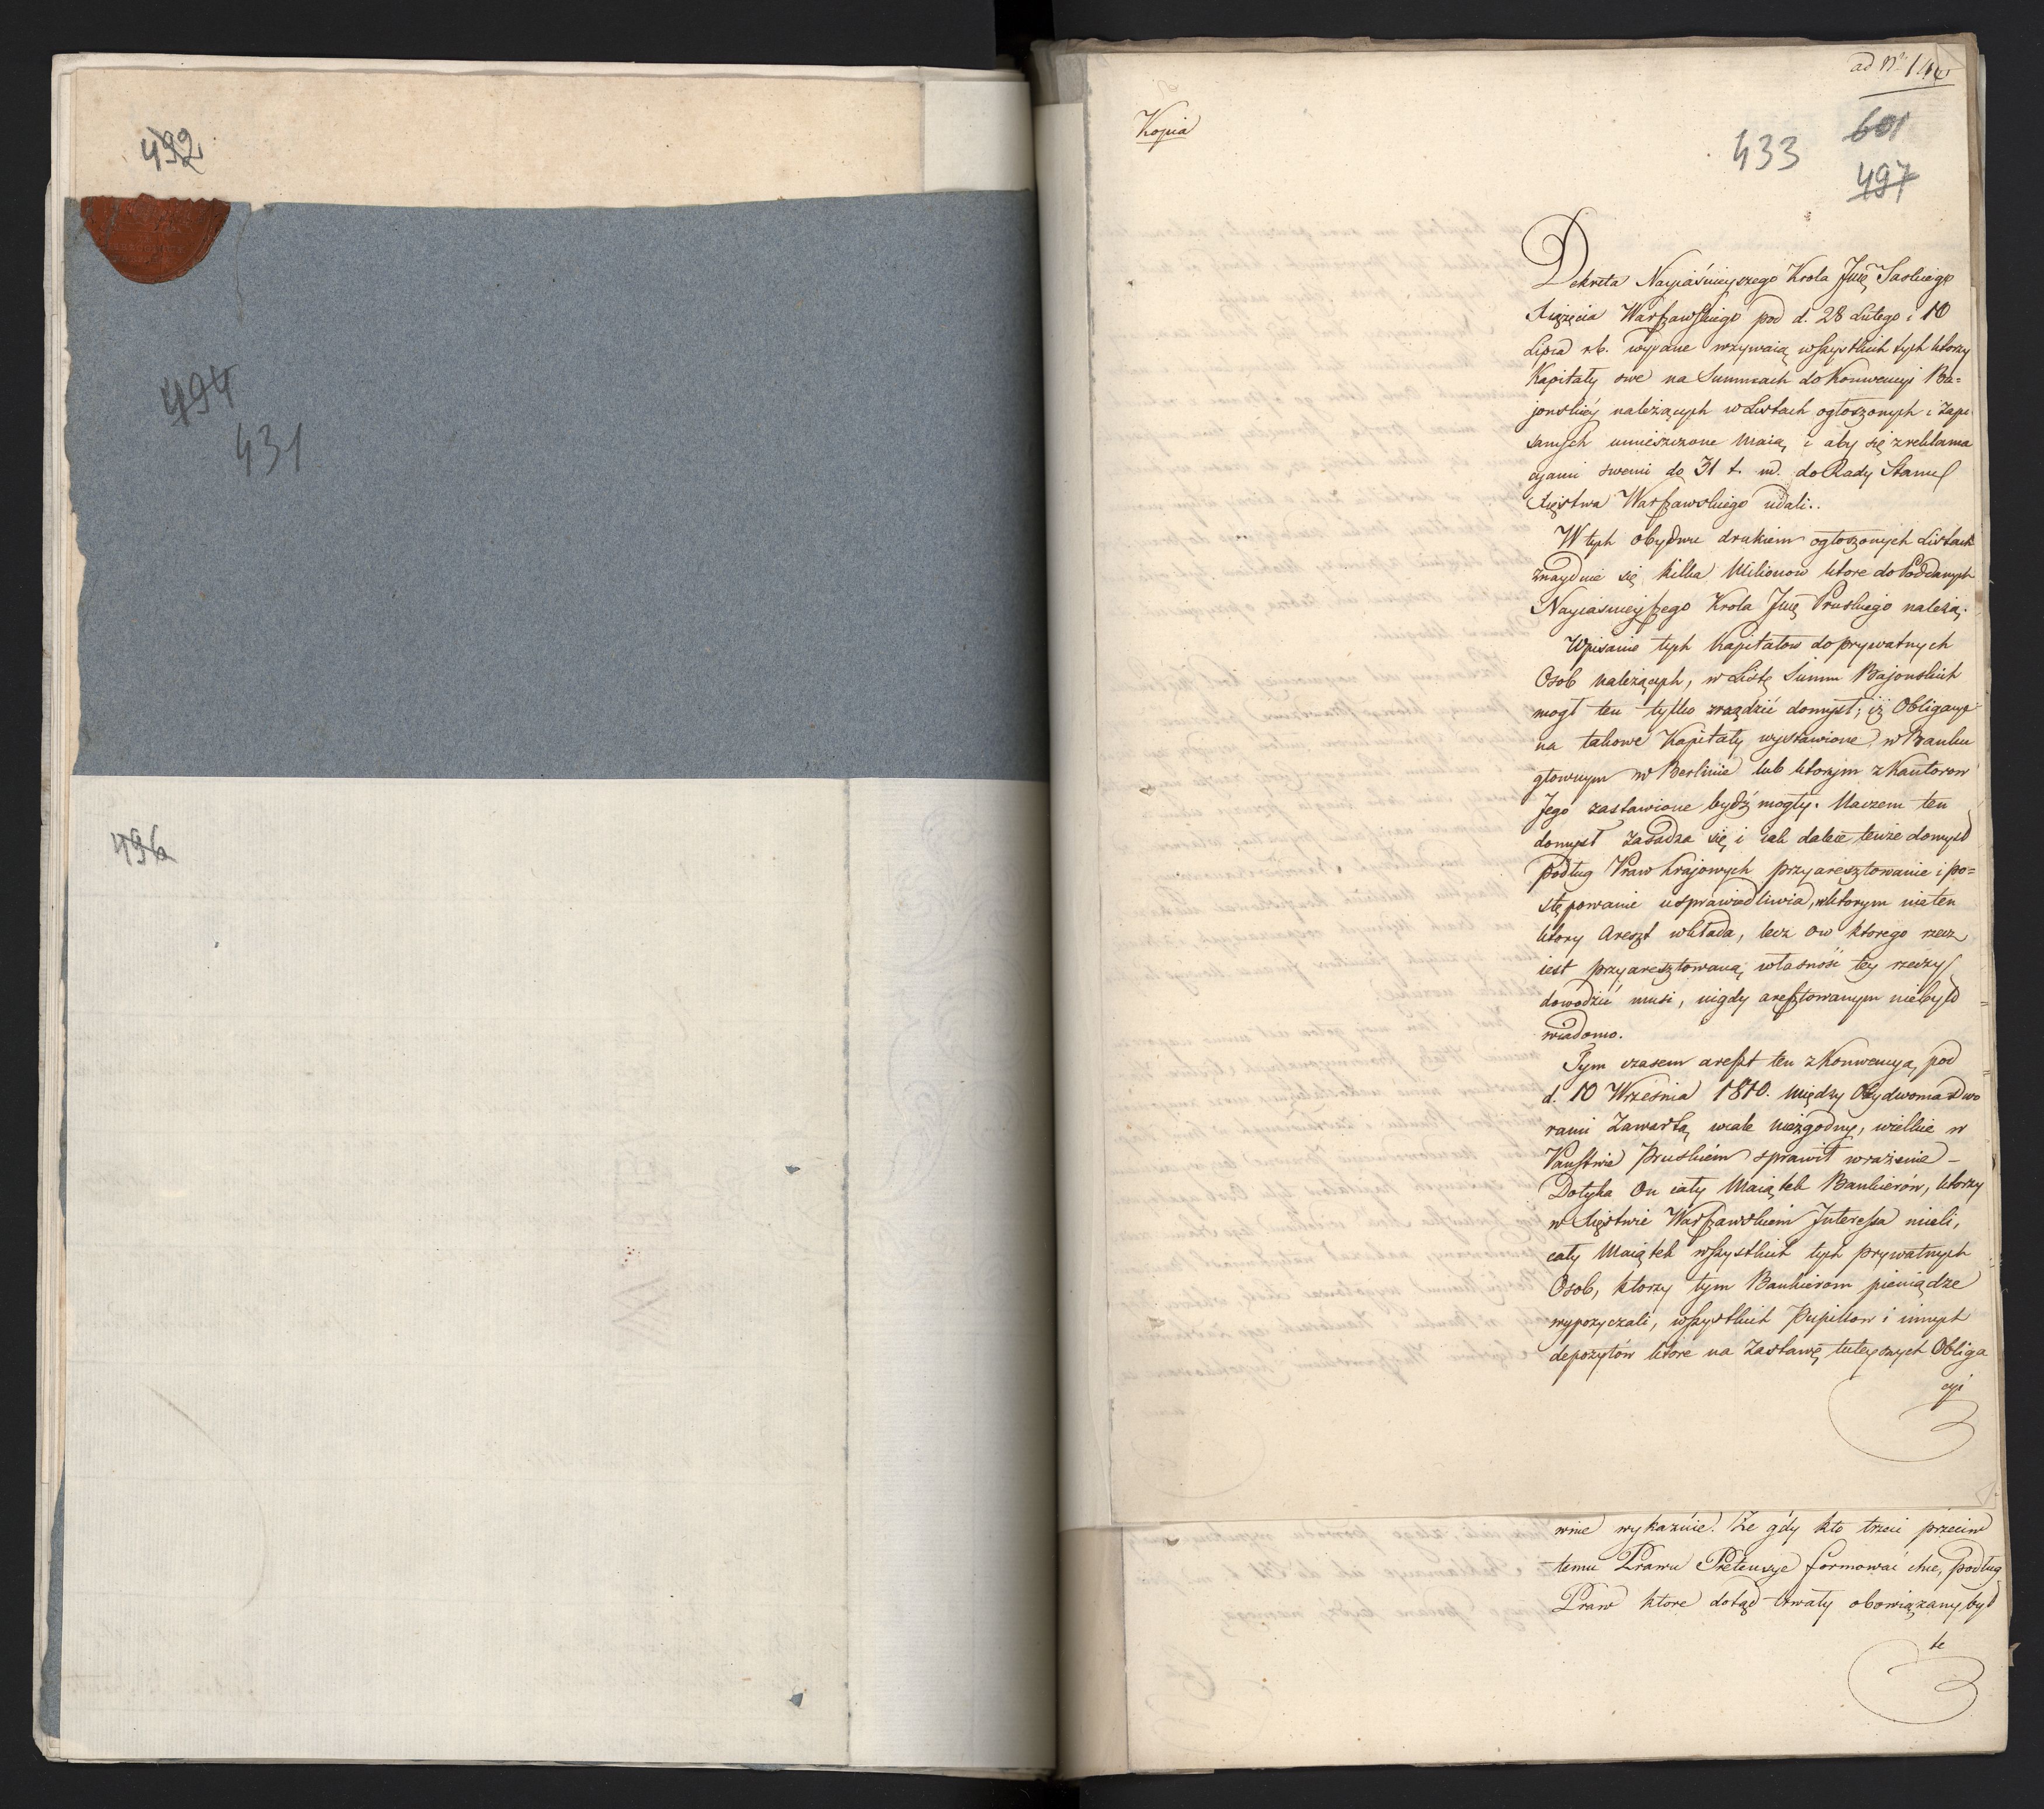 492
494
431
496
ad No 144
Kopia
433
601
497
Dekreta Nayiaśnieyszego Krola Jmę Saskiego
Xiążęcia Warszawskiego pod d. 28 Lutego i 10
Lipca r.b. wydane wzywaią wszystkich tych ktorzy
Kapitały swe na Summach do Konwencyi Ba=
jonskiey należących w Listach ogłoszonych i zapi
sanych umieszczone maią, i aby się z reklama
cyami swemi do 31 t. m. do Rady Stanu
Xięstwa Warszawskiego udali..
W tych obydwu drukiem ogłoszonych Listach
znayduie się kilka Milionow ktore do Poddanych
Nayiasnieyszego Krola Jmę Pruskiego należą.
Wpisanie tych Kapitałow do prywatnych
Osob należących, w Listę Summ Bajonskich
mogł ten tylko zrządzić domysł; iż Obligacye
na takowe Kapitały wystawione, w Banku
głownym w Berlinie lub ktorym z Kantorow
Jego zastawione bydź mogły. Na czem ten
domysł zasadza się i iak dalece tenże domysł
podług Praw Krajowych przyaresztowanie i po=
stępowanie usprawiedliwia, w ktorym nie ten
ktory Areszt wkłada, lecz ow ktorego rzecz
iest przyaresztowaną, własność tey rzeczy
dowodzić musi, nigdy aresztowanym nie było
wiadomo.
Tym czasem areszt ten z Konwencyą pod
d. 10 Września 1810. między Obydwoma Dwo
rami zawartą wcale niezgodny, wielkie w
Państwie Pruskiem sprawił wrażenie –
Dotyka On cały Maiątek Bankierów, ktorzy
w Xięstwie Warszawskiem Interessa mieli,
cały Maiątek wszystkich tych prywatnych
Osob, ktorzy tym Bankierom pieniądze
wypożyczali, wszystkich Pupillow i innych
depozytów ktore na Zastawę tuteyszych Obliga
cyi
wnie wykaźnie. Że gdy kto trzeci przeciw
temu Prawu Pretensye formować chce, podług
Praw ktore dotąd trwały obowiązany był
te